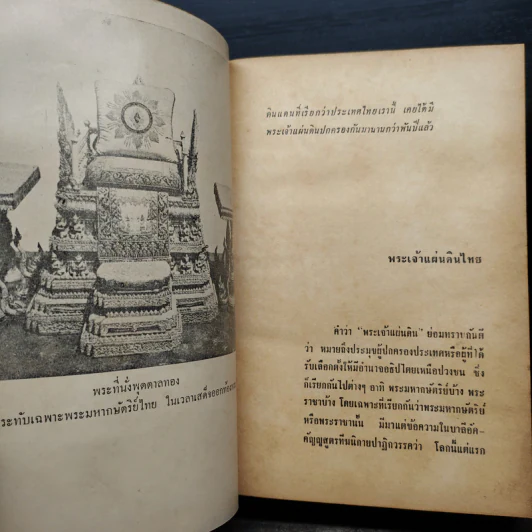 พระที่นั่งพุดตาลทอง
ระทับเฉพาะพระมหากษัตริย์ไทย ในเวลาเสด็จออกท้อง
ดินแดนที่เรียกว่าประเทศไทยเรานี้ เคยได้มี
พระเจ้าแผ่นดินปกครองกันมานานกว่าพันปีแล้ว
พระเจ้าแผ่นดินไทย
คำว่า "พระเจ้าแผ่นดิน" ย่อมทราบกันดี
ว่า หมายถึงประมุขผู้ปกครองประเทศหรือผู้ที่ได้
รับเลือกตั้งให้มีอำนาจอธิปไตยเหนือปวงชน ซึ่ง
ก็เรียกกันไปต่างๆ อาทิ พระมหากษัตริย์บ้าง พระ
ราชาบ้าง โดยเฉพาะที่เรียกกันว่าพระมหากษัตริย์
หรือพระราชานั้น มีมาแต่ข้อความในบาลีอัค-
คัญญสูตรทีฆนิกายปาฏิกวรรคว่า โลกนี้แต่แรก